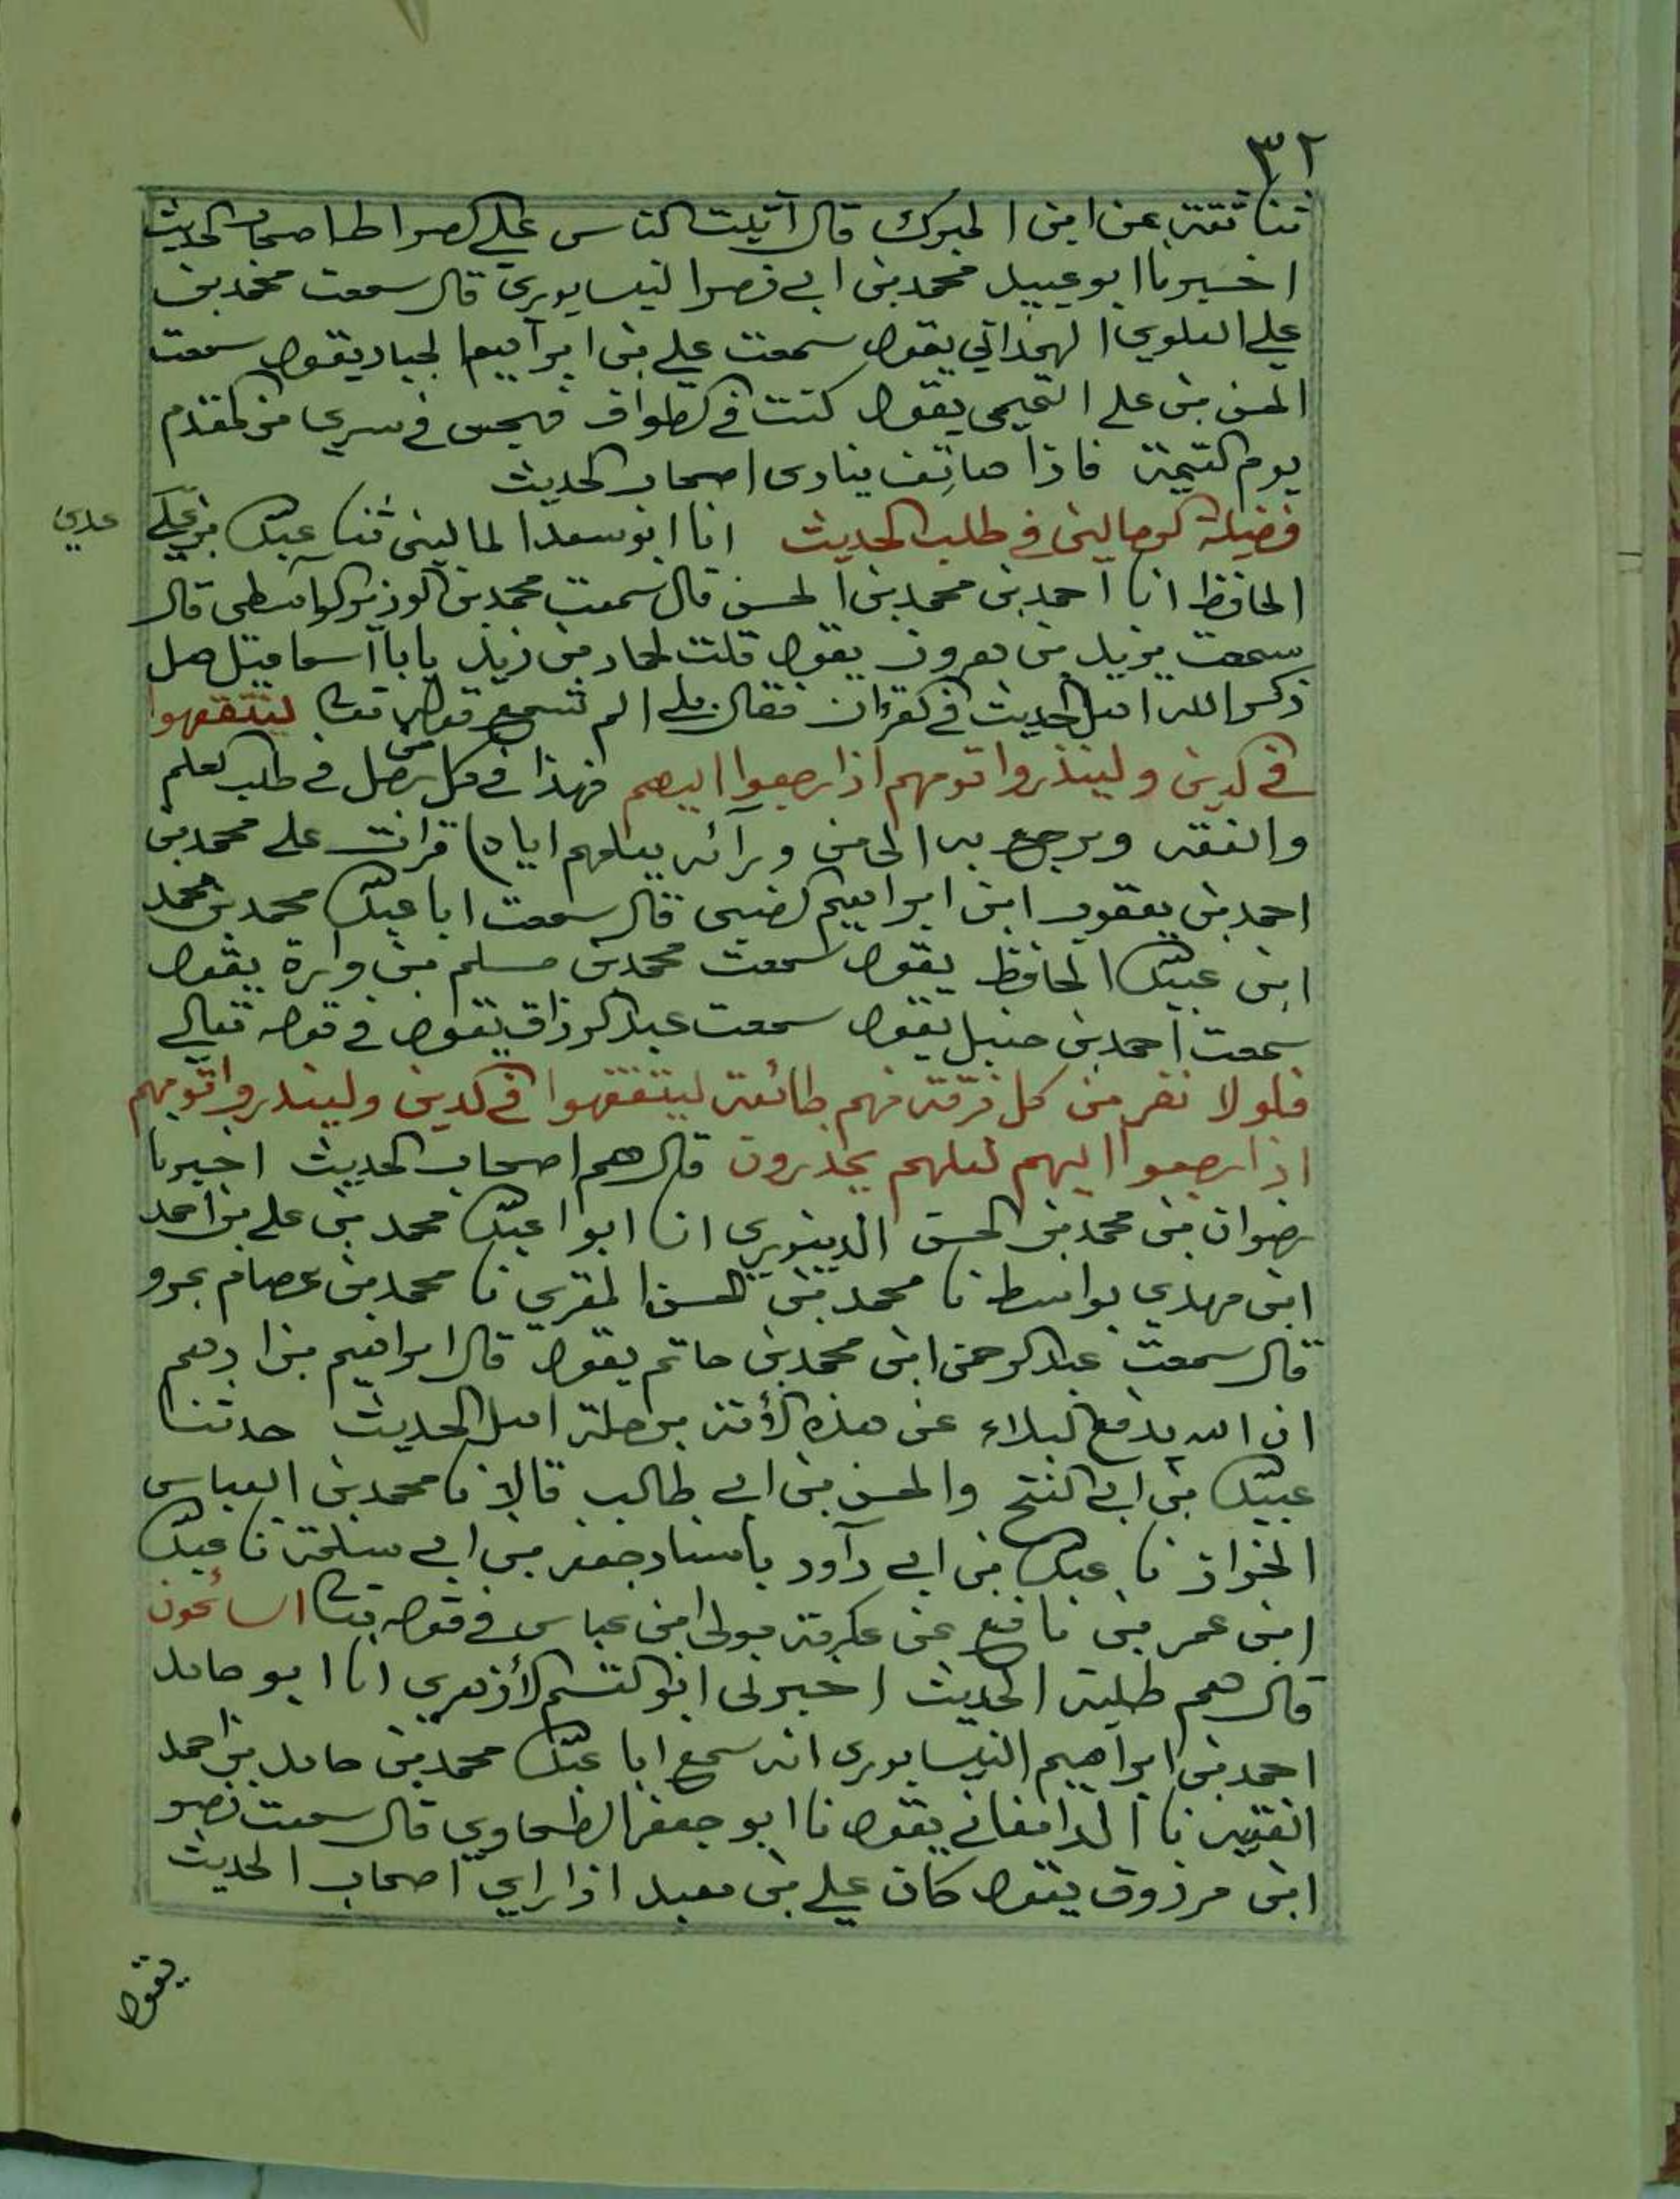 ٣٢
ثنا ثقة عن ابن المبرك قال اثبت الناس على الصراط اصحاب الحديث
اخبرنا ابو عبيد محمد بن ابي نصر النيسابوري قال سمعت محمد بن
علي العلوي الهمداني يقول سمعت علي بن ابراهيم الجباد يقول سمعت
الحسن بن علي التميمي يقول كنت في الطواف فهجس في سري من المقدم
يوم القيمة فاذا هاتف ينادى اصحاب الحديث
فضيلة الرحالين في طلب الحديث انا ابو سعد الماليني ثنا عبد الله بن علي
عدي
الحافظ انا احمد بن محمد بن الحسن قال سمعت محمد بن الوزير الواسطي قال
سمعت يزيد بن هرون يقول قلت لحماد بن زيد يابا اسماعيل هل
ذكر الله اهل الحديث في القرءان فقال بلى الم تسمع قوله تعالى ليتفقهوا
في الدين ولينذروا قومهم اذا رجعوا اليهم فهذا في كل من رحل في طلب العلم
والفقه ويرجع به الى من ورآئه يعلمهم اياه قرات على محمد بن
احمد بن يعقوب ابن ابراهيم الضبي قال سمعت ابا عبد الله محمد بن محمد
ابن عبيد الله الحافظ يقول سمعت محمد بن مسلم بن وارة يقول
سمعت احمد بن حنبل يقول سمعت عبد الرزاق يقول في قوله تعالى
فلولا نفر من كل فرقة منهم طائفة ليتفقهوا في الدين ولينذروا قومهم
اذا رجعوا اليهم لعلهم يحذرون قال هم اصحاب الحديث اخبرنا
رضوان بن محمد بن الحسن الدينوري انا ابوا عبد الله محمد بن علي بن احمد
ابن مهدي بواسط نا محمد بن الحسن المقري نا محمد بن عصام بمرو
قال سمعت عبد الرحمن ابن محمد بن حاتم يقول قال ابراهيم بن ادهم
ان الله يدفع البلاء عن هذه الأمة برحلة اهل الحديث حدثنا
عبيد الله بن ابي الفتح والحسن بن ابي طالب قالا نا محمد بن العباس
الخزاز نا عبد الله بن ابي دآود باسناد جعفر بن ابي سلمة نا عبد الله
ابن عمر بن نافع عن عكرمة مولى ابن عباس في قوله تعالى السائحون
قال هم طلبة الحديث اخبرنى ابو القسم الأزهري انا ابو حامد
احمد بن ابراهيم النيسابورى انه سمع ابا عبد الله محمد بن حامد بن احمد
الفقيه نا الدامغاني يقول نا ابو جعفر الطحاوي قال سمعت نصر
ابن مرزوق يقول كان علي بن معبد اذا راي اصحاب الحديث
يقول